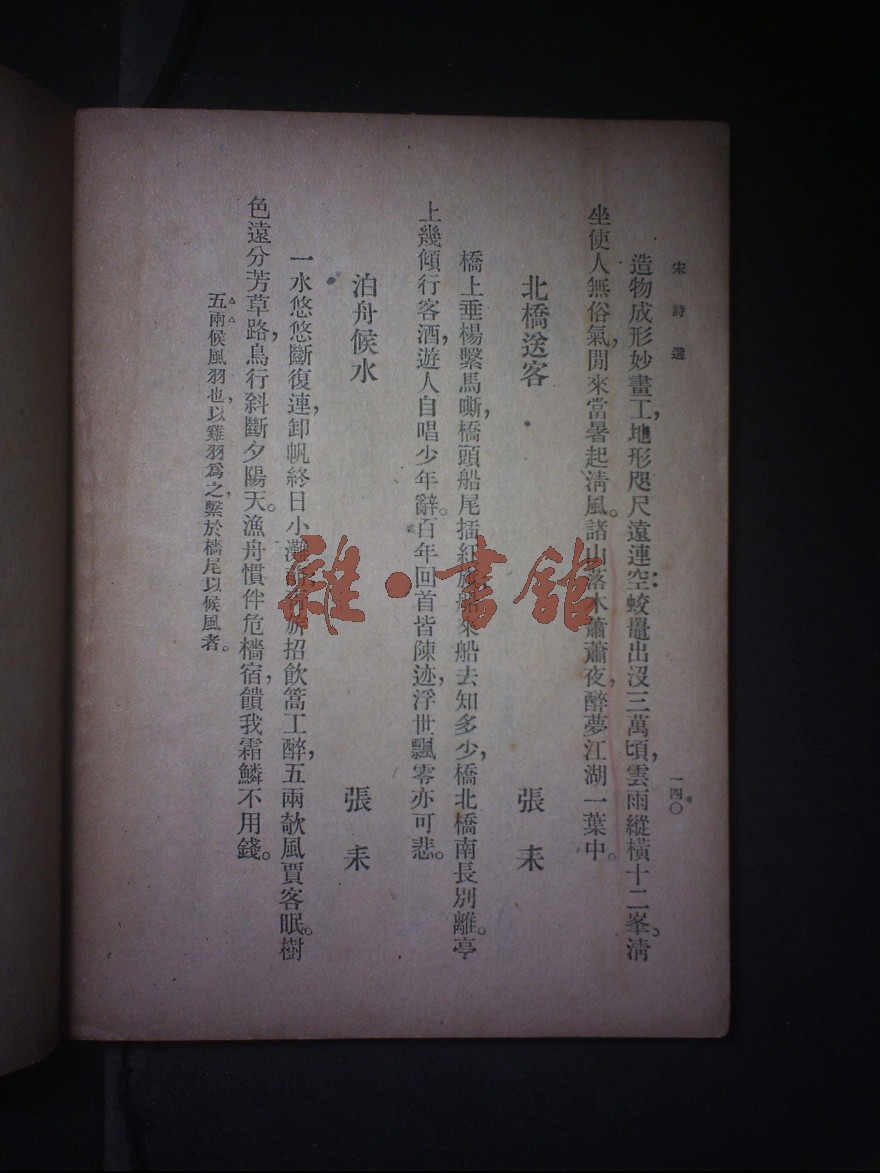 宋詩選
一四〇
造物成形妙畫工，地形咫尺遠連空。蛟鼉出沒三萬頃，雲雨縱橫十二峯。清
坐使人無俗氣，閒來當暑起淸風。諸山落木蕭蕭夜，醉夢江湖一葉中。
北橋送客　張耒
橋上垂楊繫馬嘶，橋頭船尾插紅旗。船來船去知多少，橋北橋南長別離。亭
上幾傾行客酒，遊人自唱少年辭。百年回首皆陳迹，浮世飄零亦可悲。
泊舟候水　張耒
一水悠悠斷復連，卸帆終日小灘招飲篙工醉，五兩欹風賈客眠。樹
色遠分芳草路，鳥行斜斷夕陽天。漁舟慣伴危檣宿，饋我霜鱗不用錢。
五兩候風羽也，以雞羽爲之，繫於檣尾以候風者。
雜·書館